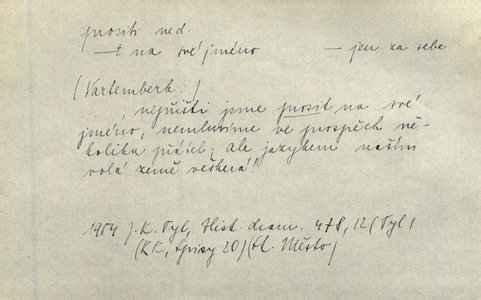 prositi ned.
—t na své jméno — jen za sebe
(Vartemberk:)
nepřišli jsme prosit na své
jméno, nemluvíme ve prospěch ně-
kolika přátel; ale jazykem naším
volá země veškerá!!
1954 J. K. Tyl, Hist. dram. 478, 12 (Tyl)
(KK, Spisy 20) (Kl. Město)